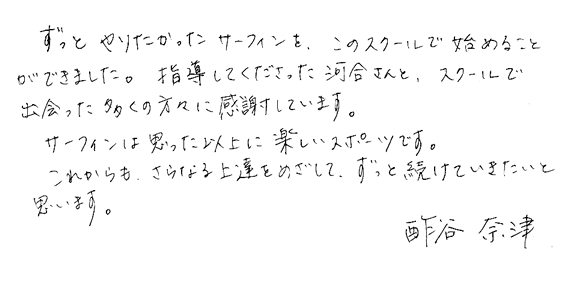 ずっとやりたかったサーフィンを、このスクールで始めること
ができました。指導してくださった河合さんと、スクールで
出会った多くの方々に感謝しています。
サーフィンは思った以上に楽しいスポーツです。
これからも、さらなる上達をめざして、ずっと続けていきたいと
思います。
酢谷 奈津